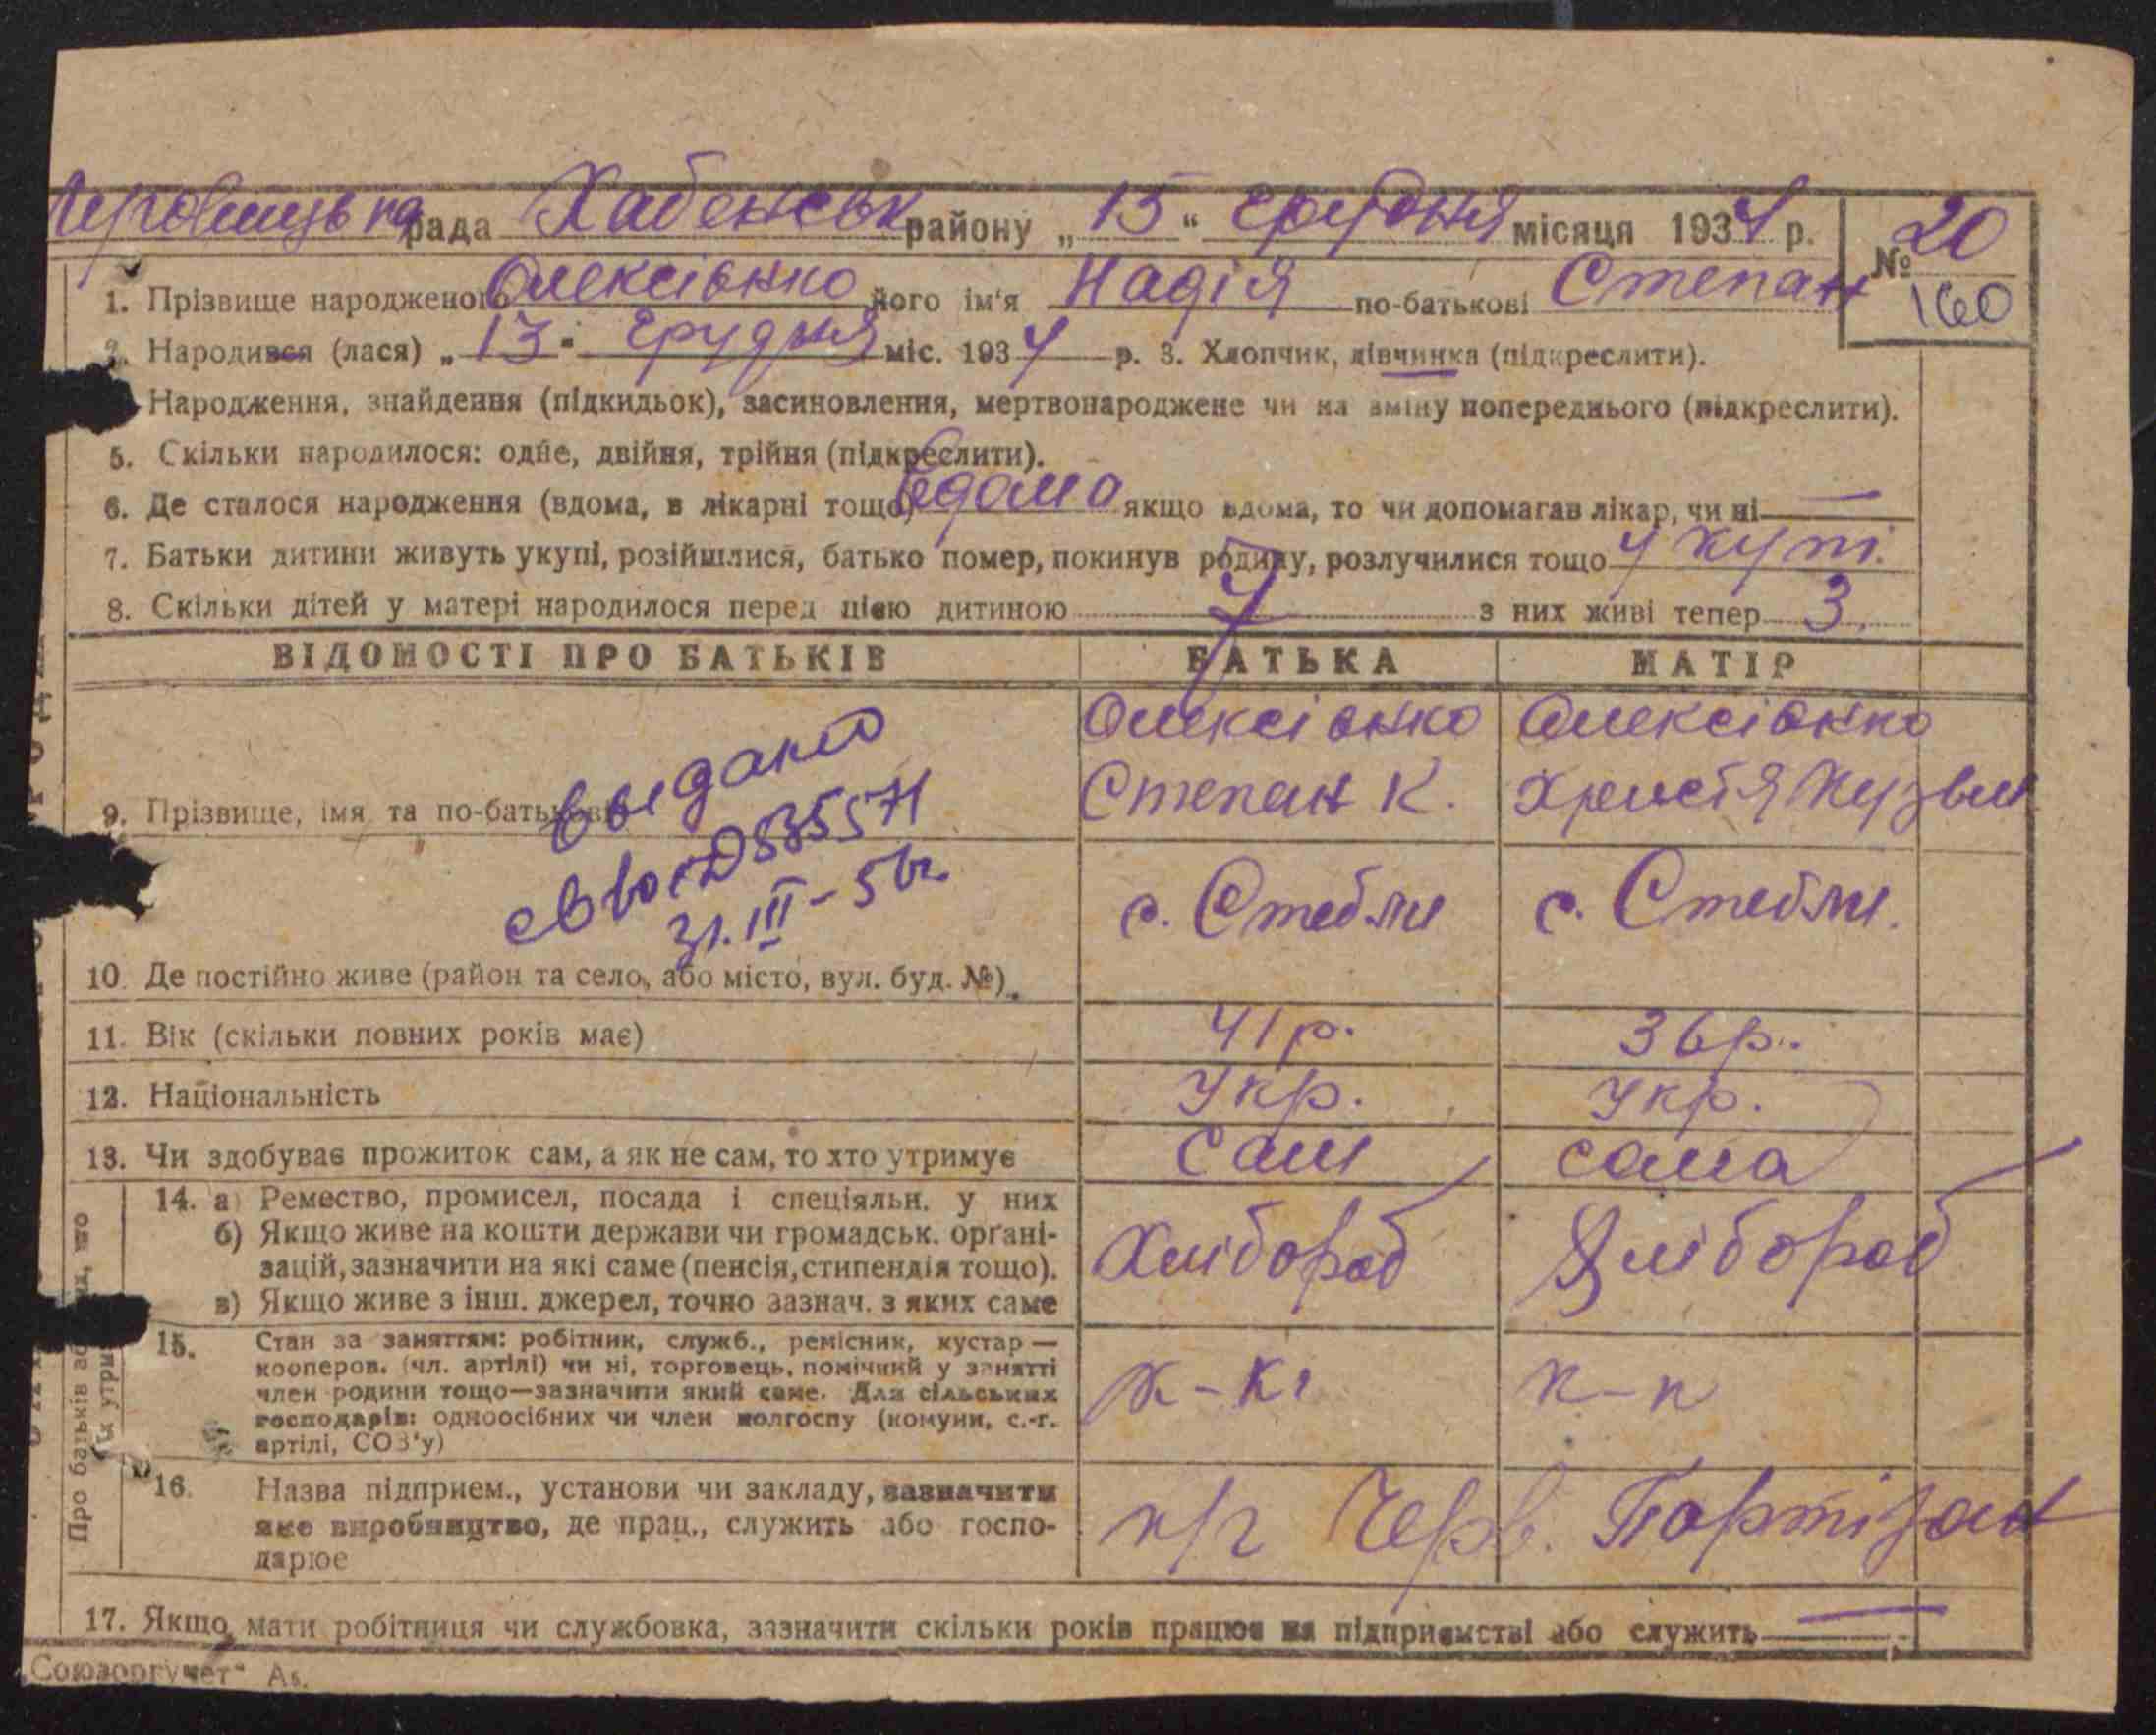 рада Хабенськ району „ 15 “ грудня місяця 1934 р. № 20
1. Прізвище народженого Олексієнко його ім'я Надія по-батькові Степан 160
2. Народився (лася) „ 13 " грудня міс. 1934 р. 3. Хлопчик, дівчинка (підкреслити).
Народження, знайдення (підкидьок), засиновлення, мертвонароджене чи на зміну попереднього (підкреслити).
5. Скільки народилося: одне, двійня, трійня (підкреслити).
6. Де сталося народження (вдома, в лікарні тощо) вдома якщо вдома, то чи допомагав лікар, чи ні —
7. Батьки дитини живуть укупі, розійшлися, батько помер, покинув родину, розлучилися тощо у купі.
8. Скільки дітей у матері народилося перед цією дитиною 7 з них живі тепер 3.
ВІДОМОСТІ ПРО БАТЬКІВ БАТЬКА МАТІР
Олексієнко Олексієнко
9. Прізвище, імя та по-батькові Степан К. Христя Кузьм
выдано
свво 535571
31.III-56г.
с. Стебли с. Стебли.
10. Де постійно живе (район та село, або місто, вул. буд. №)
11. Вік (скільки повних років має) 41 р. 36 р.
12. Національність Укр. Укр.
13. Чи здобуває прожиток сам, а як не сам, то хто утримує сам сама
14. а) Ремество, промисел, посада і спеціяльн. у них
б) Якщо живе на кошти держави чи громадськ. орґані-
зацій, зазначити на які саме (пенсія, стипендія тощо). Хлібороб Хлібороб
в) Якщо живе з інш. джерел, точно зазнач. з яких саме
15. Стан за заняттям: робітник, служб., ремісник, кустар —
кооперов. (чл. артілі) чи ні, торговець, помічний у занятті
член родини тощо—зазначити який саме. Для сільських к-к к-к
господарів: одноосібних чи член колгоспу (комуни, с.-г.
артілі, СОЗ'у)
16. Назва підприєм., установи чи закладу, зазначити
яке виробництво, де прац., служить або госпо- к/г Черв. Партізан
дарює
17. Якщо мати робітниця чи службовка, зазначити скільки років працює на підприємстві або служить —
„Союзоргучет“